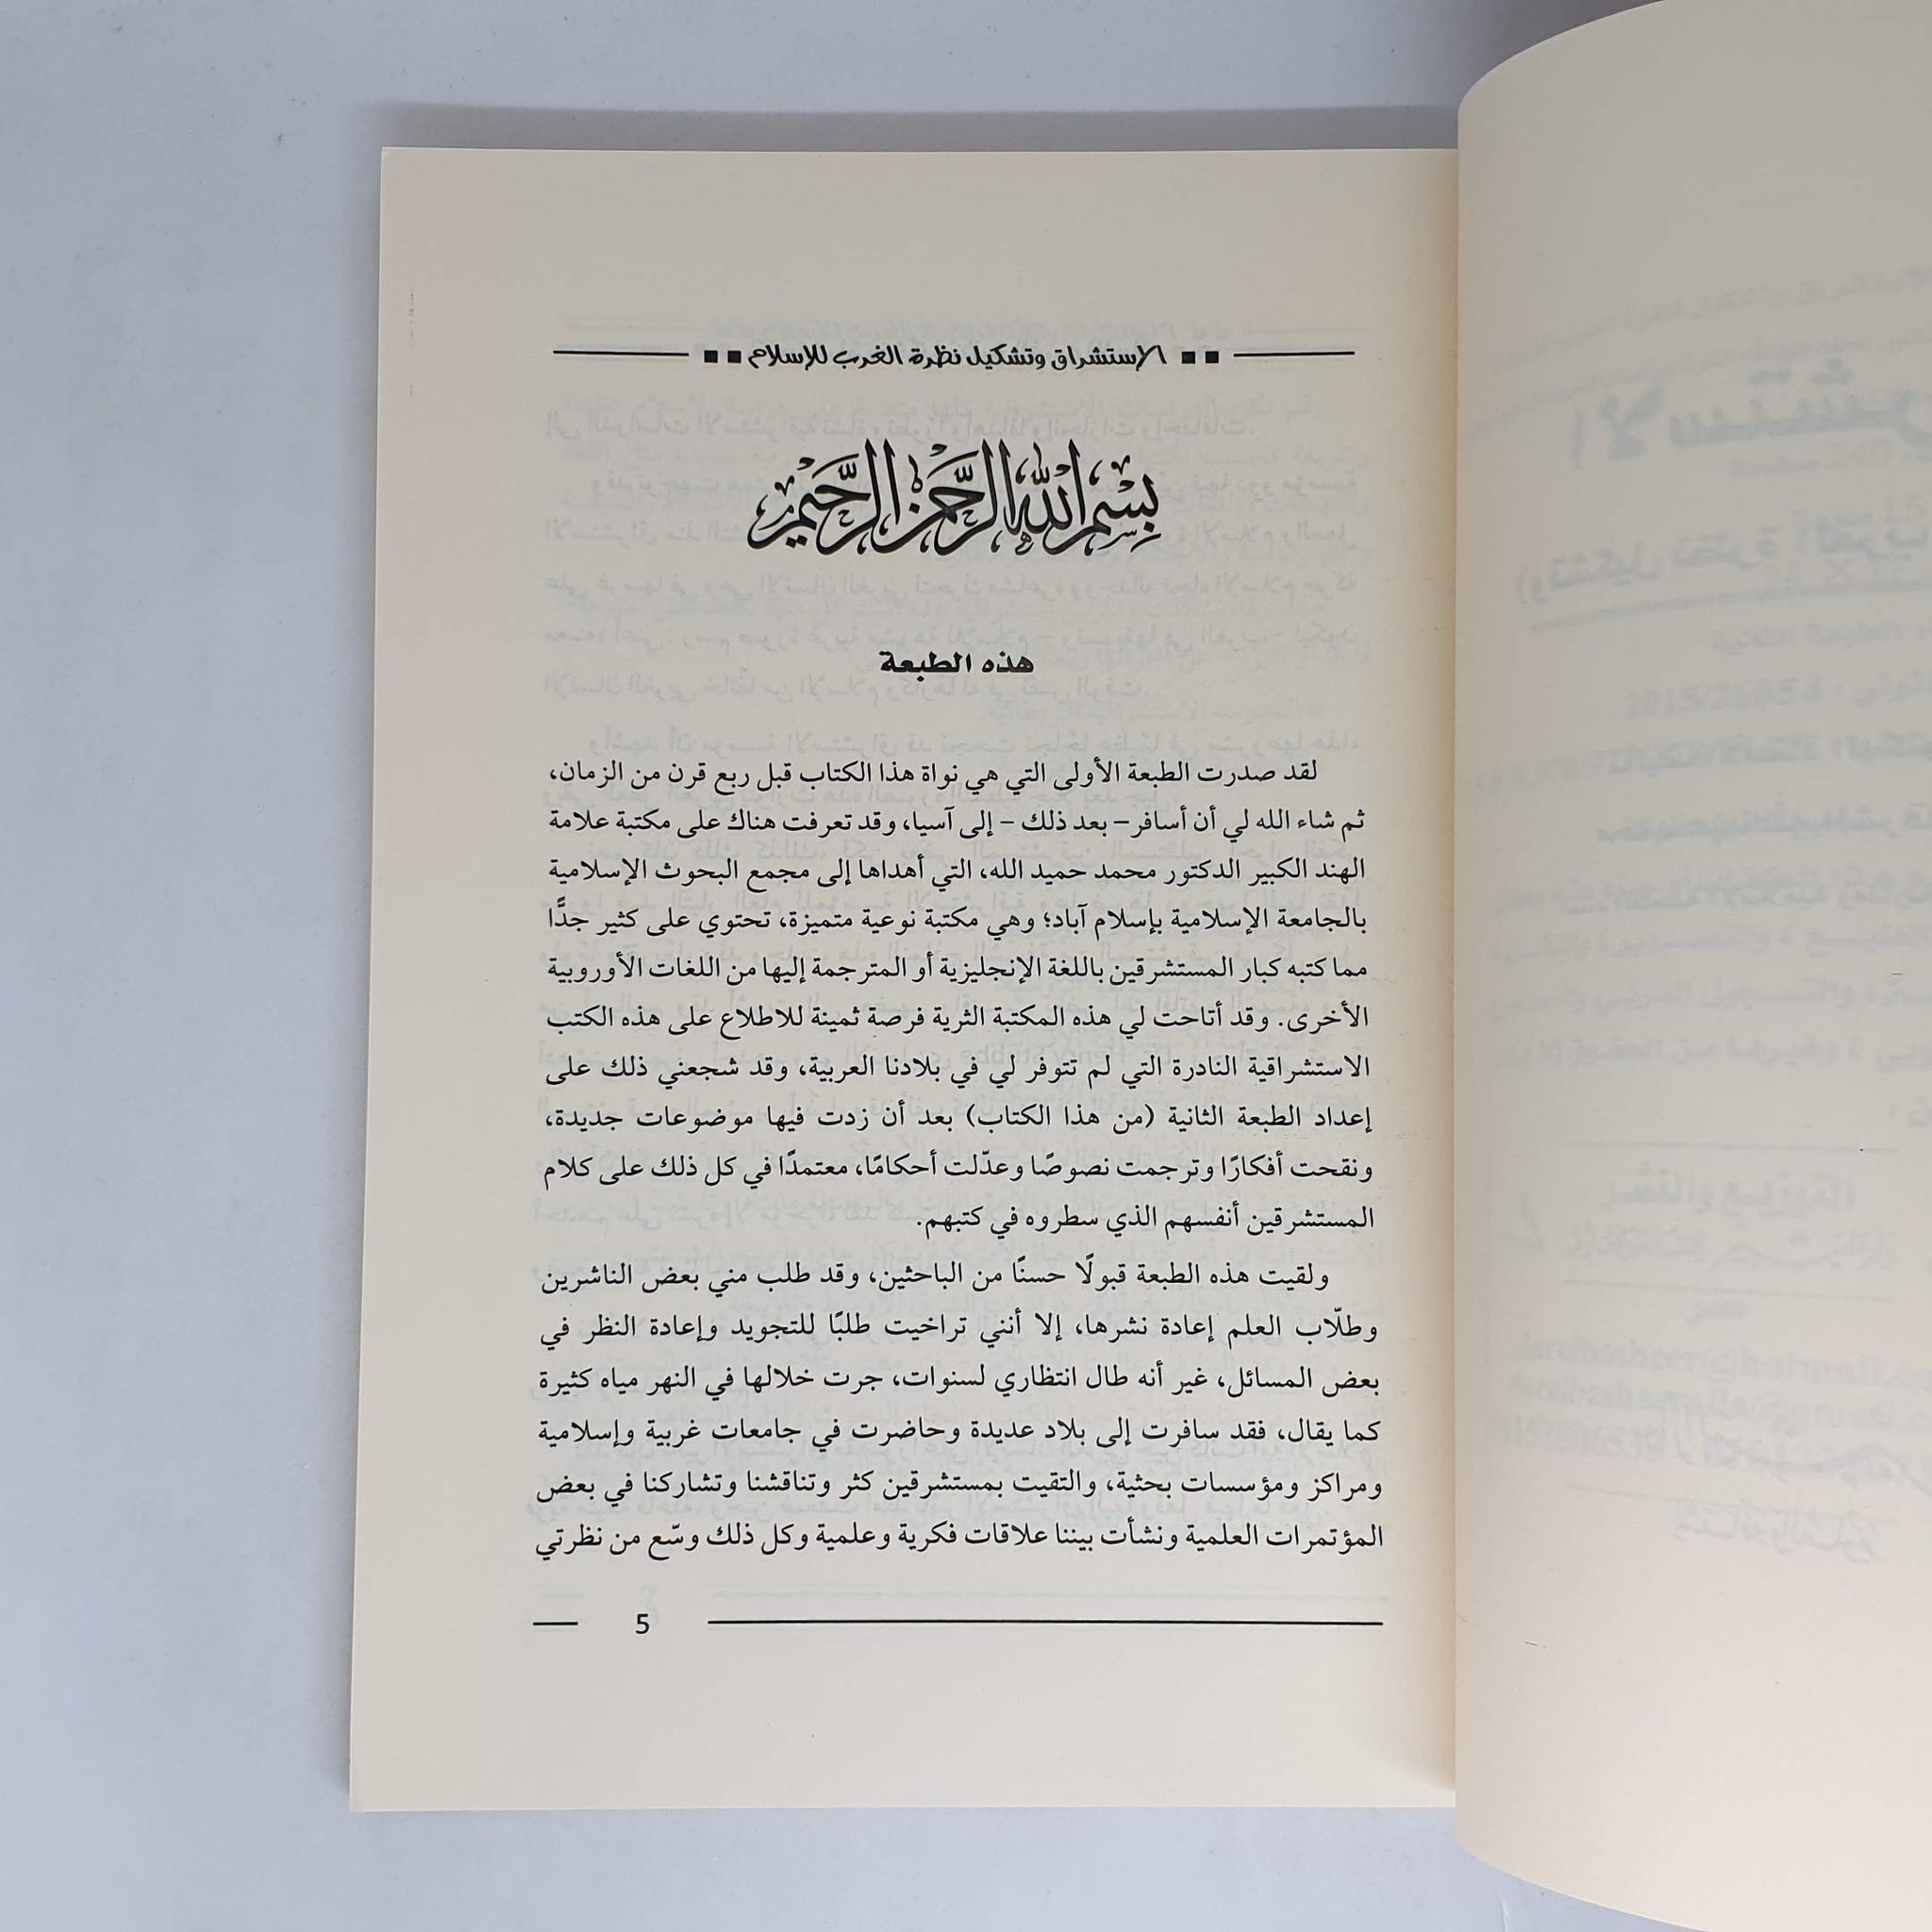 الاستشراق وتشكيل نظرة الغرب للإسلام
بِسْمِ اللَّهِ الرَّحْمَنِ الرَّحِيمِ
هذه الطبعة
لقد صدرت الطبعة الأولى التي هي نواة هذا الكتاب قبل ربع قرن من الزمان،
ثم شاء الله لي أن أسافر – بعد ذلك – إلى آسيا، وقد تعرفت هناك على مكتبة علامة
الهند الكبير الدكتور محمد حميد الله، التي أهداها إلى مجمع البحوث الإسلامية
بالجامعة الإسلامية بإسلام آباد؛ وهي مكتبة نوعية متميزة، تحتوي على كثير جدًّا
مما كتبه كبار المستشرقين باللغة الإنجليزية أو المترجمة إليها من اللغات الأوروبية
الأخرى. وقد أتاحت لي هذه المكتبة الثرية فرصة ثمينة للاطلاع على هذه الكتب
الاستشراقية النادرة التي لم تتوفر لي في بلادنا العربية، وقد شجعني ذلك على
إعداد الطبعة الثانية (من هذا الكتاب) بعد أن زدت فيها موضوعات جديدة،
ونقحت أفكارًا وترجمت نصوصًا وعدّلت أحكامًا، معتمدًا في كل ذلك على كلام
المستشرقين أنفسهم الذي سطروه في كتبهم.
ولقيت هذه الطبعة قبولًا حسنًا من الباحثين، وقد طلب مني بعض الناشرين
وطلّاب العلم إعادة نشرها، إلا أنني تراخيت طلبًا للتجويد وإعادة النظر في
بعض المسائل، غير أنه طال انتظاري لسنوات، جرت خلالها في النهر مياه كثيرة
كما يقال، فقد سافرت إلى بلاد عديدة وحاضرت في جامعات غربية وإسلامية
ومراكز ومؤسسات بحثية، والتقيت بمستشرقين كثر وتناقشنا وتشاركنا في بعض
المؤتمرات العلمية ونشأت بيننا علاقات فكرية وعلمية وكل ذلك وسّع من نظرتي
5